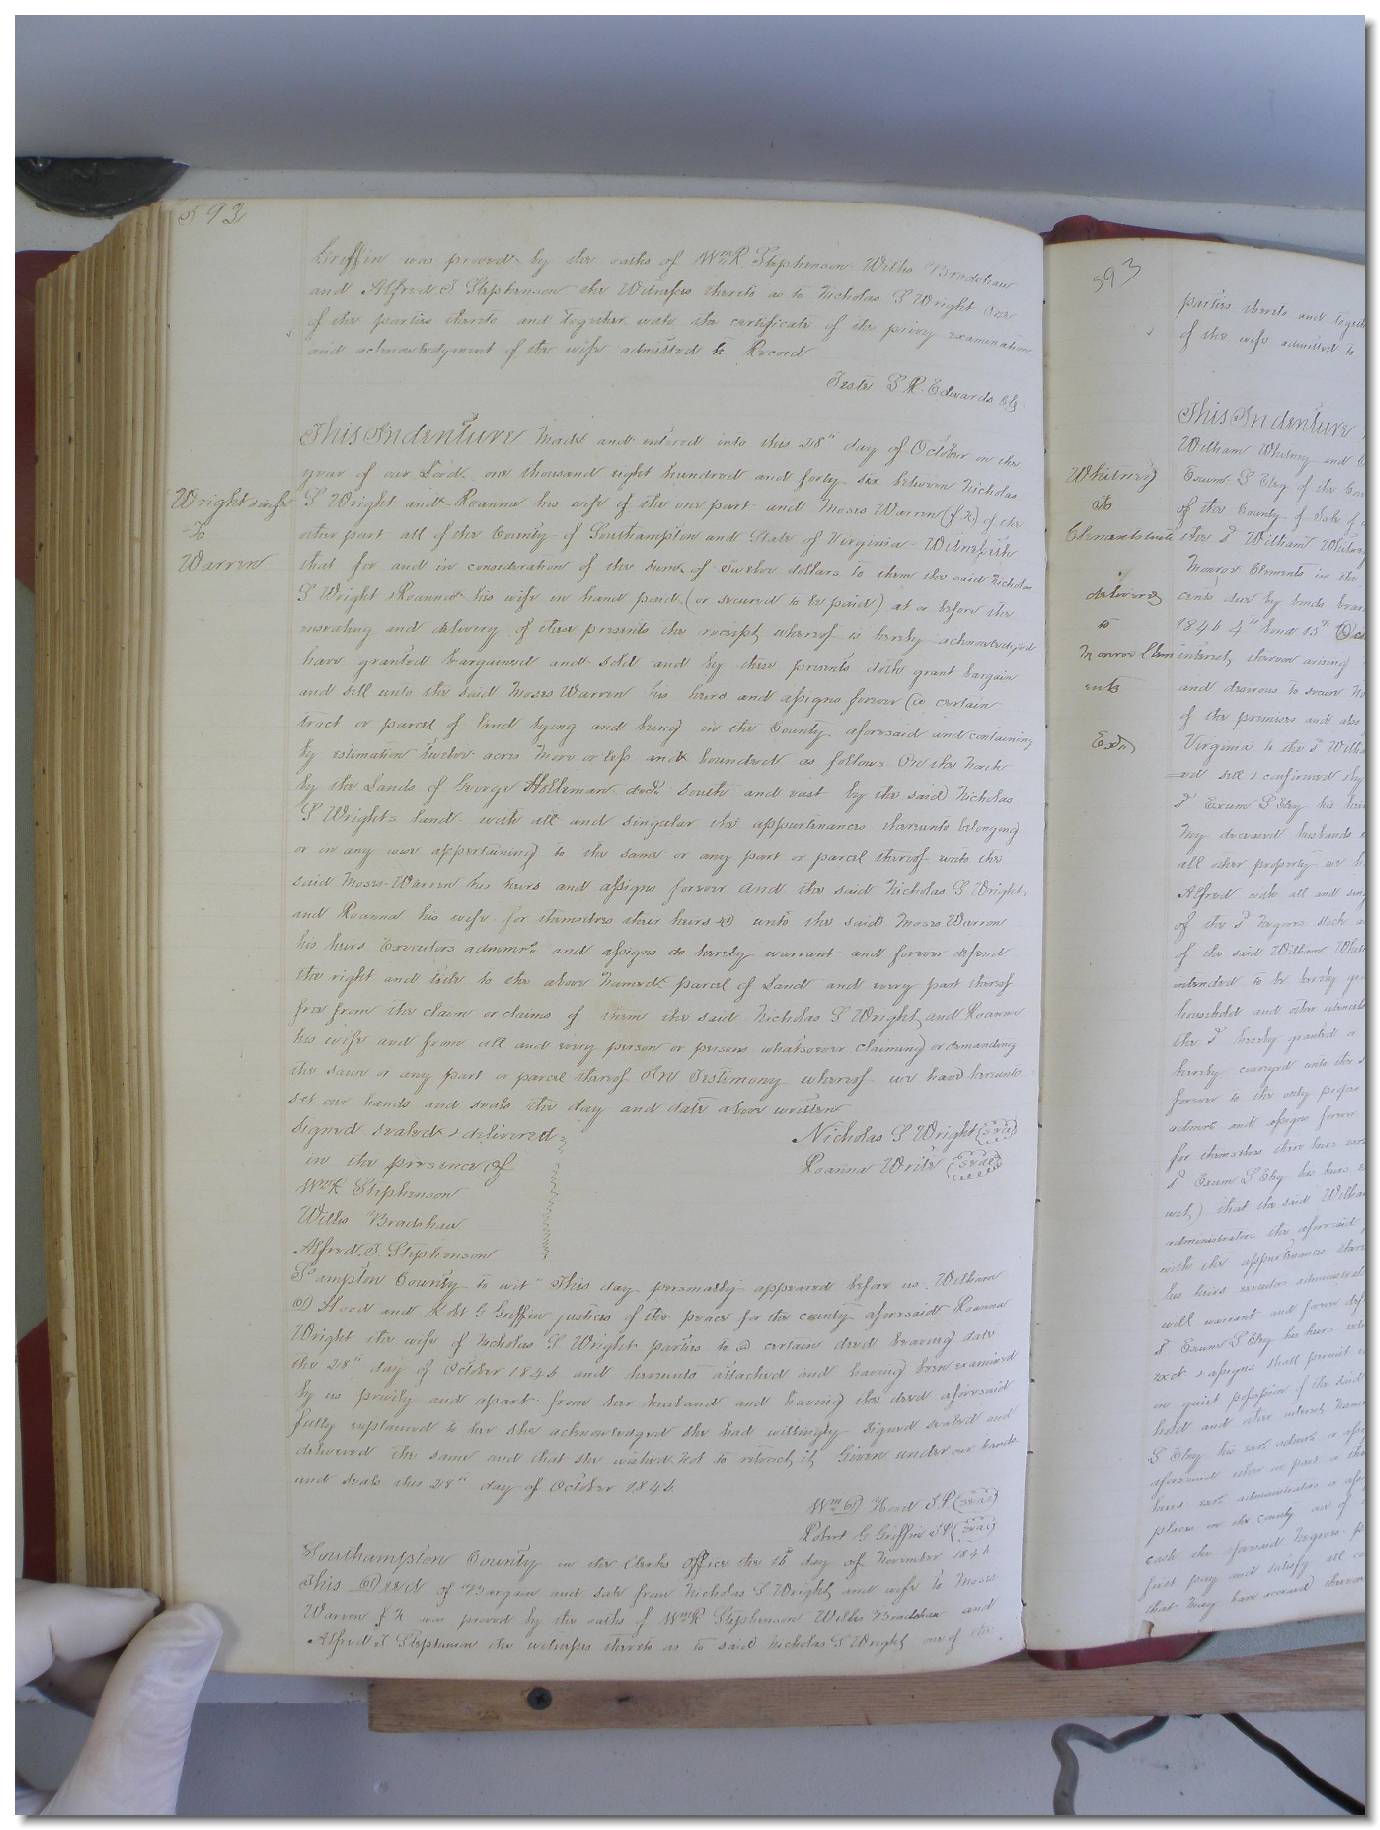 593
Griffin was proved by the oaths of Wm R Stephenson Willis Bradshaw
and Alfred J Stephenson the Witnesses thereto as to Nicholas S Wright One
of the parties thereto and together with the certificate of the privy examination
and acknowledgment of the wife admitted to Record
Teste L R Edwards Clk
This Indenture Made and entered into this 28th day of October in the
year of our Lord one thousand eight hundred and forty six between Nicholas
Wright & wife
to
Warren
S Wright and Roanna his wife of the one part and Moses Warren (f n) of the
other part all of the County of Southampton and State of Virginia Witnesseth
that for and in consideration of the sum of twelve dollars to them the said Nicholas
S Wright & Roanna his wife in hand paid (or secured to be paid) at or before the
ensealing and delivery of these presents the receipt whereof is hereby acknowledged
have granted bargained and sold and by these presents doth grant bargain
and sell unto the said Moses Warren his heirs and assigns forever (a certain
tract or parcel of land lying and being in the County aforesaid and containing
by estimation twelve acres more or less and bounded as follows On the North
by the Lands of George Holleman decd South and east by the said Nicholas
S Wrights land with all and singular the appurtenances thereunto belonging
or in any wise appertaining to the same or any part or parcel thereof unto the
said Moses Warren his heirs and assigns forever and the said Nicholas S Wright
and Roanna his wife for themselves their heirs &c unto the said Moses Warren
his heirs Executors adminrs and assigns do hereby warrant and forever defend
the right and title to the above named parcel of Land and every part thereof
free from the claim or claims of them the said Nicholas S Wright and Roanna
his wife and from all and every person or persons whatsoever claiming or demanding
the same or any part or parcel thereof In Testimony whereof we have hereunto
set our hands and seals the day and date above written
Signed sealed & delivered
in the presence of
Wm R Stephenson
Willis Bradshaw
Alfred J. Stephenson
Nicholas S Wright (seal)
Roanna Write (seal)
S'ampton County to wit This day personally appeared before us William
D Hood and R W G Griffin justices of the peace for the county aforesaid Roanna
Wright the wife of Nicholas S Wright parties to a certain deed bearing date
the 28th day of October 1846 and hereunto attached and having been examined
by us privily and apart from her husband and having the deed aforesaid
fully explained to her she acknowledged she had willingly signed sealed and
delivered the same and that she wished not to retract it Given under our hands
and seals this 28th day of October 1846
Wm D Hood J P (seal)
Robert G Griffin J P (seal)
Southampton County in the Clerks Office the 16 day of November 1846
This Deed of Bargain and sale from Nicholas S Wright and wife to Moses
Warren f n was proved by the oaths of Wm R Stephenson Willis Bradshaw and
Alfred J Stephenson the witnesses thereto as to said Nicholas S Wright one of the
593
parties thereto and together
of the wife admitted to
This Indenture
William Whitney and
Whitney
to
Exum S Eley of the
of the County of Isle of
the sd William Whitney
Monroe Clements in the
delivered
to
cents due by bonds
1846 4th
interest thereon arising
and desirous to secure
of the premises and also
Exd
Virginia to the sd William
sell & confirmed
sd Exum S Eley his heirs
my deceased husbands
all other property
Alfred with all and
of the sd Negroes
of the said William
intended to be hereby
household and other
the sd hereby granted
hereby conveyed unto the
forever to the only proper
admrs and assigns forever
for themselves their heirs
sd Exum S Eley his heirs
wit,) that the said William
administrators the aforesaid
with the appurtenances
his heirs executors
will warrant and forever
sd Exum S Eley his heirs
& assigns shall permit
in quiet possession of the said
S Eley his
aforesaid
heirs
place in the county
cash the aforesaid Negroes
first pay and satisfy all
that may have accrued thereon